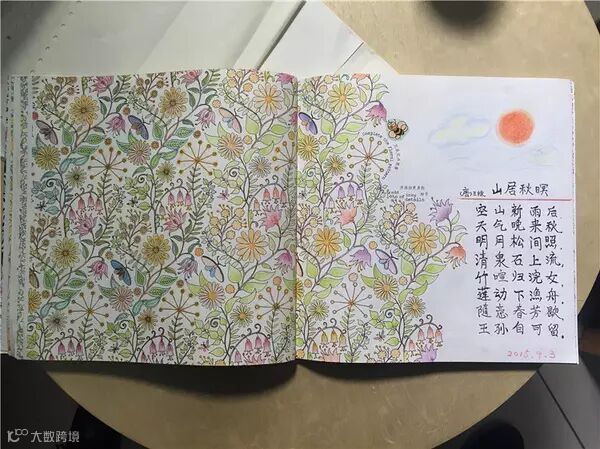 山居秋暝
空山新雨后,
天气晚来秋.
明月松间照,
清泉石上流.
竹喧归浣女,
莲动下漁舟.
隨意春芳歇,
王孙自可留.
2015.9.3
complete
of tiny
details
大数跨境